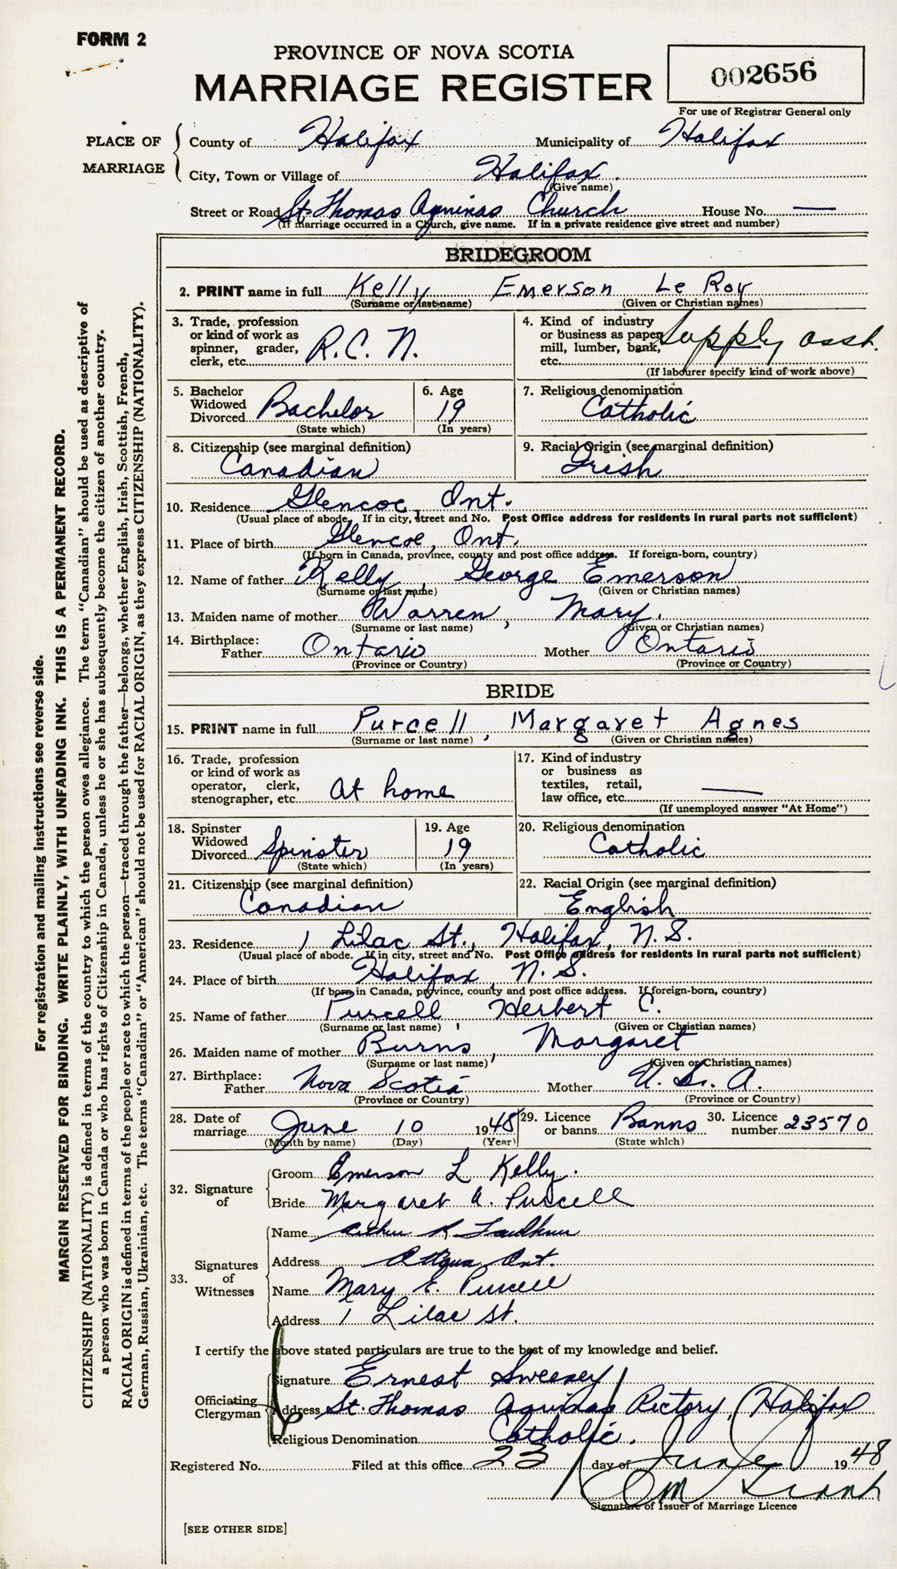 FORM 2
PROVINCE OF NOVA SCOTIA
MARRIAGE REGISTER
002656
For use of Registrar General only
PLACE OF MARRIAGE
County of Halifax Municipality of Halifax
City, Town or Village of Halifax.
(Give name)
Street or Road St Thomas Aquinas Church House No. —
(If marriage occurred in a Church, give name. If in a private residence give street and number)
BRIDEGROOM
2. PRINT name in full Kelly Emerson Le Roy
(Surname or last name) (Given or Christian names)
3. Trade, profession or kind of work as spinner, grader, clerk, etc. R.C.N.
4. Kind of industry or business as paper mill, lumber, bank, etc. Supply asst.
(If labourer specify kind of work above)
5. Bachelor Widowed Divorced Bachelor
(State which)
6. Age 19
(In years)
7. Religious denomination Catholic
8. Citizenship (see marginal definition) Canadian
9. Racial Origin (see marginal definition) Irish
10. Residence Glencoe, Ont.
(Usual place of abode. If in city, street and No. Post Office address for residents in rural parts not sufficient)
11. Place of birth Glencoe, Ont.
(If born in Canada, province, county and post office address. If foreign-born, country)
12. Name of father Kelly, George Emerson
(Surname or last name) (Given or Christian names)
13. Maiden name of mother Warren, Mary.
(Surname or last name) (Given or Christian names)
14. Birthplace: Father Ontario Mother Ontario
(Province or Country) (Province or Country)
BRIDE
15. PRINT name in full Purcell, Margaret Agnes
(Surname or last name) (Given or Christian names)
16. Trade, profession or kind of work as operator, clerk, stenographer, etc. At home
17. Kind of industry or business as textiles, retail, law office, etc. —
(If unemployed answer "At Home")
18. Spinster Widowed Divorced Spinster
(State which)
19. Age 19
(In years)
20. Religious denomination Catholic
21. Citizenship (see marginal definition) Canadian
22. Racial Origin (see marginal definition) English
23. Residence 1 Lilac St., Halifax, N.S.
(Usual place of abode. If in city, street and No. Post Office address for residents in rural parts not sufficient)
24. Place of birth Halifax N.S.
(If born in Canada, province, county and post office address. If foreign-born, country)
25. Name of father Purcell, Herbert C.
(Surname or last name) (Given or Christian names)
26. Maiden name of mother Burns, Margaret
(Surname or last name) (Given or Christian names)
27. Birthplace: Father Nova Scotia Mother U.S.A.
(Province or Country) (Province or Country)
28. Date of marriage June 10 1948
(Month by name) (Day) (Year)
29. Licence or banns Banns
(State which)
30. Licence number 23570
32. Signature of
Groom Emerson L Kelly.
Bride Margaret A. Purcell
33. Signatures of Witnesses
Name
Address Ottawa Ont.
Name Mary E. Purcell
Address 1 Lilac St.
I certify the above stated particulars are true to the best of my knowledge and belief.
Officiating Clergyman
Signature Ernest Sweeney
Address St Thomas Aquinas Rectory, Halifax
Religious Denomination Catholic.
Registered No. Filed at this office 23 day of June 1948
Signature of Issuer of Marriage Licence
[SEE OTHER SIDE]
For registration and mailing instructions see reverse side.
MARGIN RESERVED FOR BINDING. WRITE PLAINLY, WITH UNFADING INK. THIS IS A PERMANENT RECORD.
CITIZENSHIP (NATIONALITY) is defined in terms of the country to which the person owes allegiance. The term "Canadian" should be used as descriptive of
a person who was born in Canada or who has rights of Citizenship in Canada, unless he or she has subsequently become the citizen of another country.
RACIAL ORIGIN is defined in terms of the people or race to which the person—traced through the father—belongs, whether English, Irish, Scottish, French,
German, Russian, Ukrainian, etc. The terms "Canadian" or "American" should not be used for RACIAL ORIGIN, as they express CITIZENSHIP (NATIONALITY).